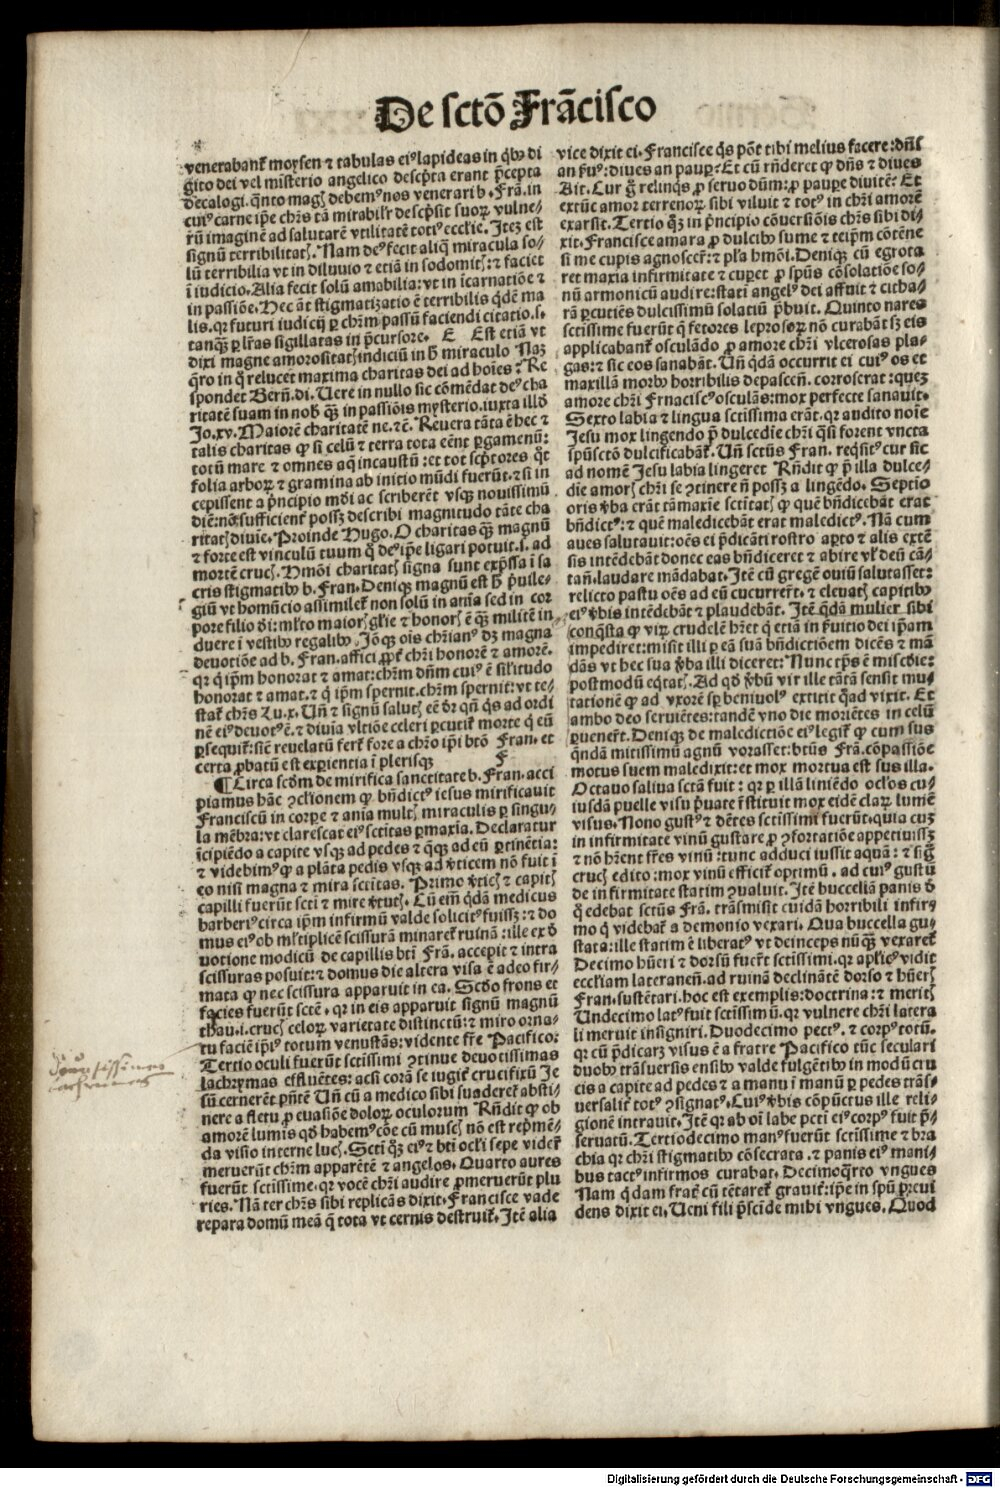 De sctō Frācisco
venerabant᷑ moysen ⁊ tabulas eiꝰ lapideas in qͥbꝰ di
gito dei vel misterio angelico descp̄ta erant p̄cepta
decalogi. qͣnto magꝭ debemꝰ nos venerari b. Frā. in
cuiꝰ carne ip̄e chr̄s tā mirabilr̄ descp̄sit suoꝝ vulne-
rū imaginē ad salutarē vtilitatē totiꝰ eccl'ie. Itez est
signū terribilitatꝭ. Nam deꝰ fecit aliq̄ miracula so-
lū terribilia vt in diluuio ⁊ etiā in sodomitꝭ: ⁊ faciet
ī iudicio. Alia fecit solū amabilia: vt in īcarnatiōe ⁊
in passiōe. Hec āt stigmatizatio ē terribilis qͥdē ma
lis. qꝛ futuri iudicij ꝑ chr̄m passū faciendi citatio. s.
tanqͣꝫ ꝑ lr̄as sigillatas in p̄cursore. E Est etiā vt
dixi magne amorositatꝭ indiciū in h̄ miraculo Naꝫ
q̄ro in q̄ relucet maxima charitas dei ad hoīes? Re
spondet Bern̄. di. Uere in nullo sic cōmēdat deꝰ cha
ritatē suam in nob̄ qͣꝫ in passiōis mysterio. iuxta illd̄
Jo. xv. Maiorē charitatē ne. ⁊c̄. Reuera tāta ē hec ⁊
talis charitas ꝙ si celū ⁊ terra tota eēnt ꝑgamenū:
totū mare ⁊ omnes aq̄ incaustū: et tot scp̄tores qͦt
folia arboꝝ ⁊ gramina ab initio mūdi fuerūt. ⁊ si in
cepissent a p̄ncipio mūdi ac scriberēt vsqꝫ nouissimū
diē: nō sufficient possꝫ describi magnitudo tāte cha
ritatꝭ diuīe. Proinde Hugo. O charitas qͣꝫ magnū
⁊ forte est vinculū tuum q̄ deꝰ ip̄e ligari potuit. s. ad
mortē crucꝭ. Hmōi charitatꝭ signa sunt exp̄ssa ī sa
cris stigmatibꝰ b. Fran. Deniqꝫ magnū est h̄ p̄uile-
giū vt homūcio assimilet᷑ non solū in aīa sed in cor
pore filio dī: ml'to maiorꝭ gl'ie ⁊ honorꝭ ē qͣꝫ militē in
duere ī vestibꝰ regalibꝰ. Jōqꝫ oīs chr̄ianꝰ dꝫ magna
deuotiōe ad b. Fran. affici ꝓpt᷑ chr̄i honorē ⁊ amorē.
qꝛ q̄ ip̄m honorat ⁊ amat: chr̄m dn̄m cuiꝰ ē sil'itudo
honorat ⁊ amat. ⁊ q̄ ip̄m spernit. chr̄m spernit: vt te-
stat᷑ chr̄s Lu. x. Un̄ ⁊ signū salutꝭ eē dr̄ qn̄ qͥs ad ordi
nē eiꝰ deuotꝰ ē. ⁊ diuīa vltiōe celeri ꝑcutit᷑ morte q̄ eū
ꝑsequit᷑: sic̄ reuelatū fert᷑ fore a chr̄o ip̄i btō Fran. et
certa ꝓbatū est exꝑientia ī plerisqꝫ F
¶ Circa scd̄m de mirifica sanctitate b. Fran. acci
piamus hāc ꝯcl'ionem ꝙ bn̄dictꝰ iesus mirificauit
Franciscū in corꝑe ⁊ aīa multꝭ miraculis ꝑ singu-
la mēbra: vt clarescat eiꝰ sctītas ꝑmaxia. Declaratur
īcipiēdo a capite vsqꝫ ad pedes ⁊ q̄qꝫ ad eū ꝑtinētia:
⁊ videbimꝰ ꝙ a plāta pedis vsqꝫ ad v̄ticem nō fuit ī
eo nisi magna ⁊ mira sctītas. Primo v̄ticꝭ ⁊ capitꝭ
capilli fuerūt scti ⁊ mire v̄tutꝭ. Cū em̄ qͥdā medicus
barberiꝰ circa ip̄m infirmū valde solicitꝰ fuissꝫ: ⁊ do
mus eiꝰ ob ml'tiplicē scissurā minaret᷑ ruinā: ille ex d̄
uotione modicū de capillis bti Frā. accepit ⁊ intra
scissuras posuit: ⁊ domus die altera visa ē adeo fir-
mata ꝙ nec scissura apparuit in ea. Scd̄o frons et
facies fuerūt sctē. qꝛ in eis apparuit signū magnū
thau. i. crucꝭ coloꝝ varietate distinctū: ⁊ miro orna-
tu faciē ip̄iꝰ totum venustās: vidente fr̄e Pacifico:
Tertio oculi fuerūt sctīssimi ꝯtinue deuotissimas
lachrymas effluētes: acsi corā se iugit᷑ crucifixū Je
sū cernerēt p̄ntē Un̄ cū a medico sibi suaderet᷑ absti-
nere a fletu ꝓ euasiōe doloꝝ oculorum Rn̄dit ꝙ ob
amorē lumis qd̄ habemꝰ cōe cū muscꝭ nō est repͥmē-
da visio interne lucꝭ. Scti qͦꝫ eiꝰ ⁊ bti ocl'i sepe vider̄
meruerūt chr̄m apparētē ⁊ angelos. Quarto aures
fuerūt sctīssime. qꝛ vocē chr̄i audire ꝓmeruerūt plu
ries. Nā ter chr̄s sibi replicās dixit. Francisce vade
repara domū meā q̄ tota vt cernis destruit᷑. Itē alia
vice dixit ei. Francisce qͥs pōt tibi melius facere: dn̄s
an ẜuꝰ: diues an pauꝑ? Et cū rn̄deret ꝙ dn̄s ⁊ diues
Ait. Cur ḡ relinqͥs ꝓ seruo dūm: ꝓ pauꝑe diuitē? Et
extūc amor terrenoꝝ sibi viluit ⁊ totꝰ in chr̄i amorē
exarsit. Tertio qͦꝫ in p̄ncipio cōuersiōis chr̄s sibi di-
xit. Francisce amara ꝓ dulcibꝰ sume ⁊ teip̄m cōtēne
si me cupis agnoscer̄: ⁊ pl'a hmōi. Deniqꝫ cū egrota
ret maxia infirmitate ⁊ cuꝑet ꝓ spūs cōsolatiōe so-
nū armonicū audire: stati angelꝰ dei affuit ⁊ citha-
rā ꝑcutiēs dulcissimū solatiū p̄buit. Quinto nares
sctissime fuerūt q̄ fetores leprosoꝝ nō curabāt sꝫ eis
applicabant᷑ osculādo ꝓ amore chr̄i vlcerosas pla-
gas: ⁊ sic eos sanabāt. Un̄ qͥdā occurrit ei cuiꝰ os et
maxillā morbꝰ horribilis depascen̄. corroserat: quez
amore chr̄i Frnaciscꝰ osculās: mox perfecte sanauit.
Sexto labia ⁊ lingua sctissima erāt. qꝛ audito noīe
Jesu mox lingendo p̄ dulcedīe chr̄i qͣsi forent vncta
spūsctō dulcificabāt᷑. Un̄ sctūs Fran. reqͥsitꝰ cur sic
ad nomē Jesu labia lingeret Rn̄dit ꝙ p̄ illa dulce-
die amorꝭ chr̄i se ꝯtinere n̄ possꝫ a lingēdo. Septīo
oris v̄ba erāt tāmaxīe sctitatꝭ ꝙ quē bn̄dicebāt erat
bn̄dictꝰ: ⁊ quē maledicebāt erat maledictꝰ. Nā cum
aues salutauit: oēs ei p̄dicāti rostro aꝑto ⁊ alis extē
sis intēdebāt donec eas bn̄diceret ⁊ abire vl' deū cā-
tan̄. laudare mādabat. Itē cū gregē ouiū salutasset:
relicto pastu oēs ad eū cucurrer̄t. ⁊ eleuatꝭ capitibꝰ
eiꝰ v̄bis intēdebāt ⁊ plaudebāt. Itē qͣdā mulier sibi
conqͣsta ꝙ viꝝ crudelē hr̄et q̄ etiā in ẜuitio dei ip̄am
impediret: misit illi ꝑ eā suā bn̄dictiōem dicēs ⁊ mā
dās vt hec sua v̄ba illi diceret: Nunc tp̄s ē mīscdie:
postmodū eqͥtatꝭ. Ad qd̄ v̄bū vir ille tātā sensit mu-
tationē ꝙ ad vxorē sꝑ beniuolꝰ extitit qͣad vixit. Et
ambo deo seruiētes: tandē vno die moriētes in celū
ꝑuener̄t. Deniqꝫ de maledictiōe eiꝰ legit᷑ ꝙ cum sus
qͣndā mitissimū agnū vorasset: btūs Frā. cōpassiōe
motus suem maledixit: et mox mortua est sus illa.
Octauo saliua sctā fuit: qꝛ ꝑ illā liniēdo ocl'os cu-
iusdā puelle visu p̄uate r̄stituit mox eidē claꝝ lumē
visus. Nono gustꝰ ⁊ dētes sctīssimi fuerūt. quia cuꝫ
in infirmitate vinū gustare ꝓ ꝯfortatiōe appetiuissꝫ
⁊ nō hr̄ent fr̄es vinū: tunc adduci iussit aquā: ⁊ sig̅
crucꝭ edito: mox vinū efficit᷑ optimū. ad cuiꝰ gustū
de infirmitate statim ꝯualuit. Itē bucceliā panis d̄
q̄ edebat sctūs Frā. trāsmisit cuidā horribili infir-
mo q̄ videbat᷑ a demonio vexari. Qua buccella gu-
stata: ille statim ē liberatꝰ vt deinceps nūqͣꝫ vexaret᷑
Decimo hūeri ⁊ dorsū fuer̄t sctīssimi. qꝛ apl'icꝰ vidit
eccl'iam lateranen̄. ad ruinā declinātē dorso ⁊ hūerꝭ
Fran. sustētari. hoc est exemplis: doctrina: ⁊ meritꝭ
Undecimo latꝰ fuit sctīssimū. qꝛ vulnere chr̄i latera
li meruit insigniri. Duodecimo pectꝰ. ⁊ corpꝰ totū.
qꝛ cū p̄dicarꝫ visus ē a fratre Pacifico tūc seculari
duobꝰ trāsuersis ensibꝰ valde fulgētibꝰ in modū cru
cis a capite ad pedes ⁊ a manu ī manū ꝑ pedes trās-
uersalit᷑ totꝰ ꝯsignatꝰ. Cuiꝰ v̄bis cōpūctus ille reli-
gionē intrauit. Itē qꝛ ab oī labe pctī eiꝰ corpꝰ fuit p̄-
seruatū. Tertiodecimo manꝰ fuerūt sctīssime ⁊ bra
chia qꝛ chr̄i stigmatibꝰ cōsecrata. ⁊ panis eiꝰ mani-
bus tactꝰ infirmos curabat. Decimoqͣrto vngues
Nam qͥdam frat᷑ cū tētaret᷑ grauit᷑: ip̄e in spū ꝑcui
dens dixit ei. Ueni fili p̄scīde mihi vngues. Quod
Digitalisierung gefördert durch die Deutsche Forschungsgemeinschaft - DFG